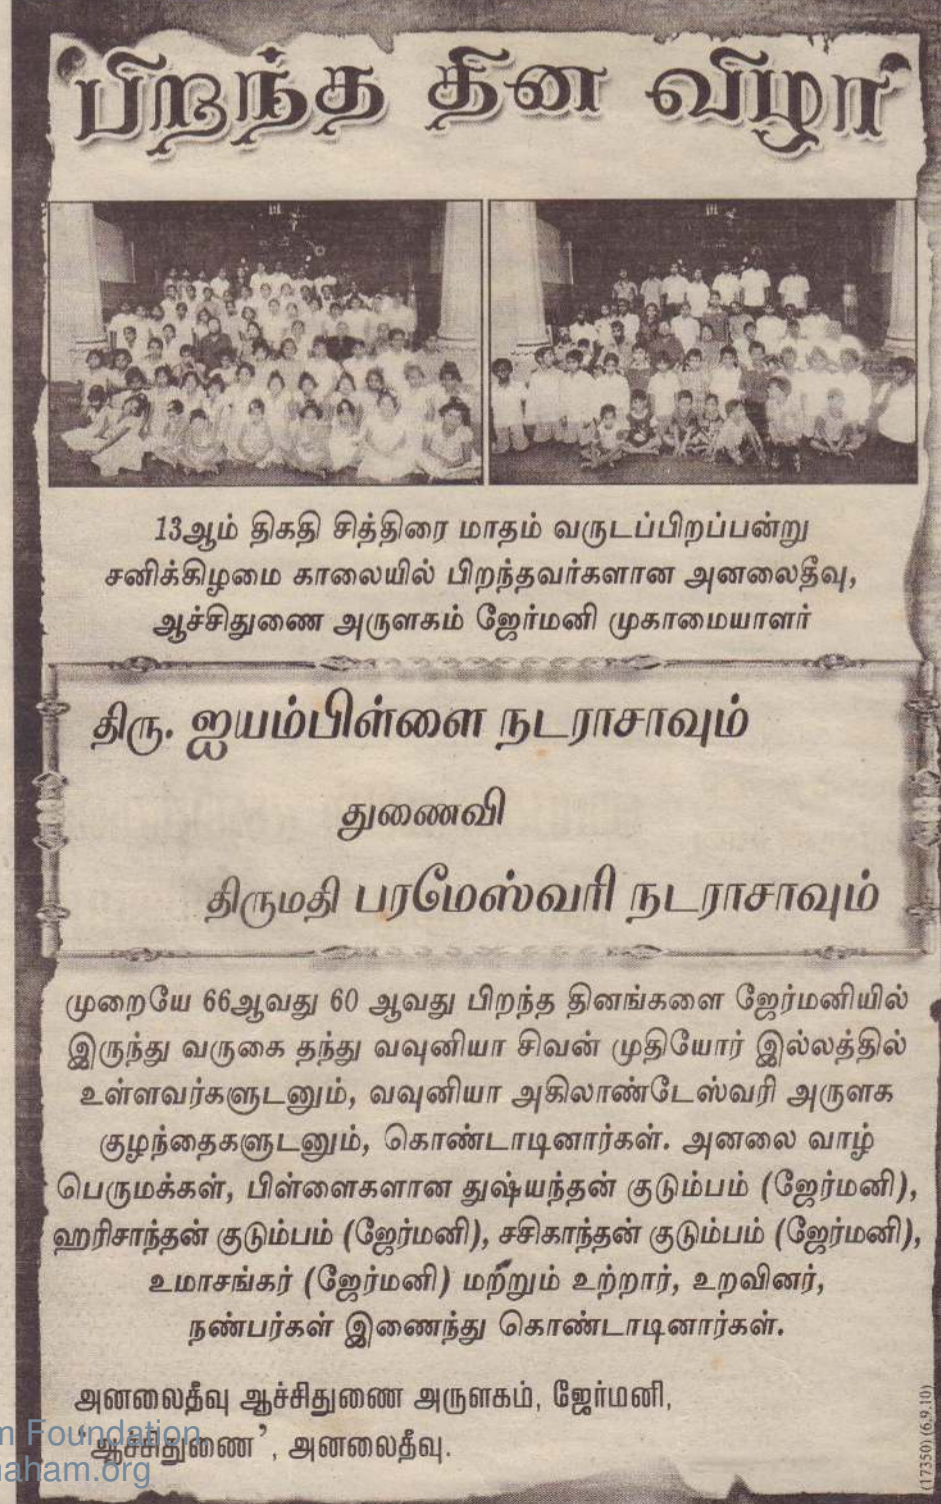 பிறந்த தின விழா
13ஆம் திகதி சித்திரை மாதம் வருடப்பிறப்பன்று
சனிக்கிழமை காலையில் பிறந்தவர்களான அனலைதீவு,
ஆச்சிதுணை அருளகம் ஜேர்மனி முகாமையாளர்
திரு. ஐயம்பிள்ளை நடராசாவும்
துணைவி
திருமதி பரமேஸ்வரி நடராசாவும்
முறையே 66ஆவது 60 ஆவது பிறந்த தினங்களை ஜேர்மனியில்
இருந்து வருகை தந்து வவுனியா சிவன் முதியோர் இல்லத்தில்
உள்ளவர்களுடனும், வவுனியா அகிலாண்டேஸ்வரி அருளக
குழந்தைகளுடனும், கொண்டாடினார்கள். அனலை வாழ்
பெருமக்கள், பிள்ளைகளான துஷ்யந்தன் குடும்பம் (ஜேர்மனி),
ஹரிசாந்தன் குடும்பம் (ஜேர்மனி), சசிகாந்தன் குடும்பம் (ஜேர்மனி),
உமாசங்கர் (ஜேர்மனி) மற்றும் உற்றார், உறவினர்,
நண்பர்கள் இணைந்து கொண்டாடினார்கள்.
அனலைதீவு ஆச்சிதுணை அருளகம், ஜேர்மனி,
‘ஆச்சிதுணை’, அனலைதீவு.
(17350) (6.9.10)
m Foundation
aham.org